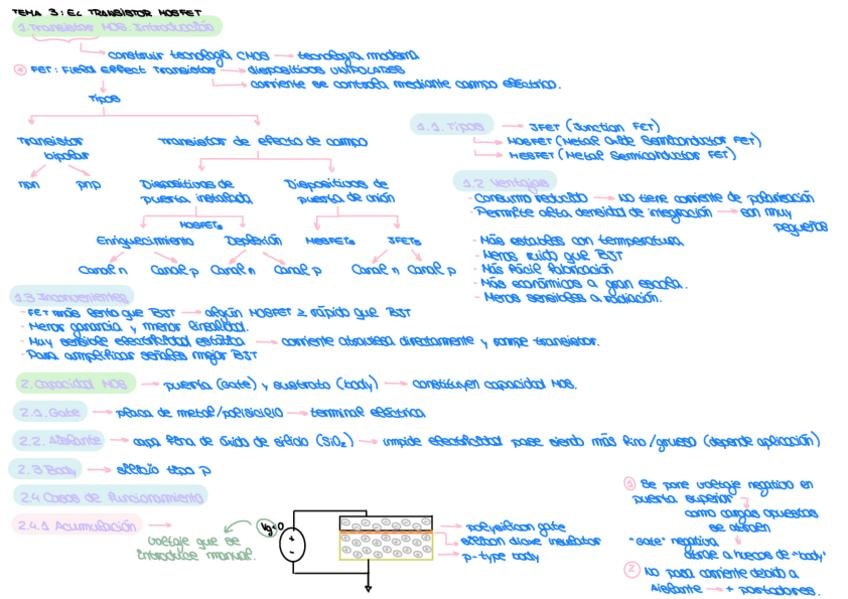 TEMA 3: EL TRANSISTOR MOSFET
1. Transistor MOS. Introducción
→ construir tecnología CMOS → tecnología moderna
* FET: Field Effect Transistor → dispositivos UNIPOLARES
→ corriente se controla mediante campo eléctrico.
Tipos
Transistor bipolar
npn pnp
Transistor de efecto de campo
Dispositivos de puerta instalada
Dispositivos de puerta de unión
MOSFETs
Enriquecimiento Deplexión MESFETs JFETs
Canal n Canal p Canal n Canal p Canal n Canal p
1.1. Tipos → JFET (Junction FET)
→ MOSFET (Metal Oxide Semiconductor FET)
→ MESFET (Metal Semiconductor FET)
1.2 Ventajas
- Consumo reducido → No tiene corriente de polarización
- Permite alta densidad de integración → son muy pequeños
- Más estables con temperatura
- Menos ruido que BJT
- Más fácil fabricación
- Más económicos a gran escala.
- Menos sensibles a radiación.
1.3 Inconvenientes
- FET más lento que BJT → algún MOSFET ≥ rápido que BJT
- Menor ganancia y menor linealidad.
- Muy sensible electricidad estática → corriente atraviesa directamente y rompe transistor.
- Para amplificar señales mejor BJT
2. Capacidad MOS → puerta (Gate) y sustrato (body) → constituyen capacidad MOS.
2.1. Gate → placa de metal/polisicilio → terminal eléctrica
2.2. Aislante → capa fina de óxido de silicio (SiO₂) → impide electricidad pase siendo más fino/grueso (depende aplicación)
2.3 Body → silicio tipo p
2.4 Casos de funcionamiento
2.4.1 Acumulación →
voltaje que se
introduce manual.
Vg<0
+
-
→ polysilicon gate
→ silicon dioxe insulator
→ p-type body
1 Se pone voltaje negativo en
puerta superior
como cargas opuestas
se atraen
"Gate" negativa
atrae a huecos de "body"
2 No pasa corriente debido a
Aislante → + portadores.